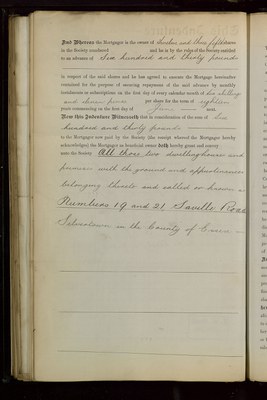 And Whereas the Mortgagor is the owner of
in the Society numbered and he is by the rules of the Society entitled
to an advance of Six hundred and thirty pounds
in respect of the said shares and he has agreed to execute the Mortgage hereinafter
contained for the purpose of securing repayment of the said advance by monthly
instalments or subscriptions on the first day of every calendar month of
and per share for the term of
years commencing on the first day of June next.
Now this Indenture Witnesseth that in consideration of the sum of Six
hundred and thirty pounds
to the Mortgagor now paid by the Society (the receipt whereof the Mortgagor hereby
acknowledges) the Mortgagor as beneficial owner doth hereby grant and convey
unto the Society All those two dwellinghouses and
premises with the ground and appurtenances
belonging thereto and called or known as
Numbers 19 and 21 Saville Road
Silvertown in the County of Essex